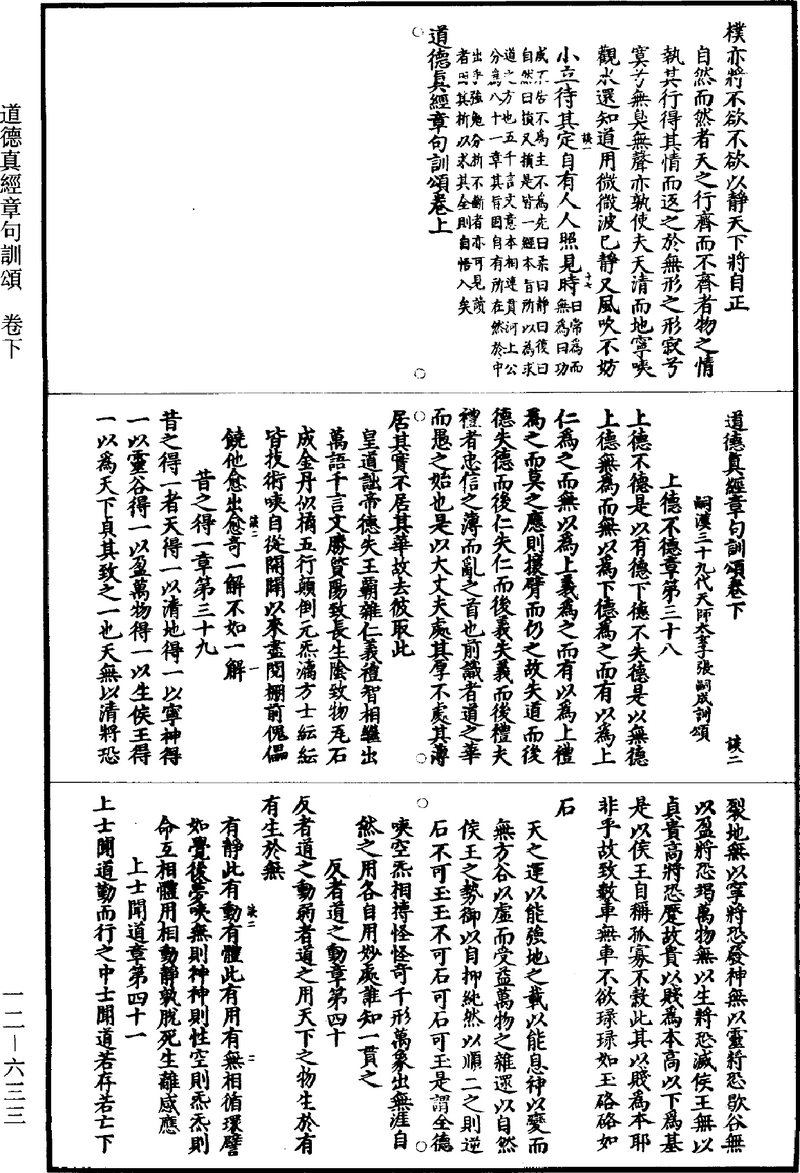 道德真經章句訓頌　卷下
一二—六三三
樸亦將不欲不欲以靜天下將自正
自然而然者天之行齊而不齊者物之情
執其行得其情而返之於無形之形寂兮
寞兮無臭無聲亦孰使夫天清而地寧唉
觀水還知道用微微波已靜又風吹不妨
小立待其定自有人人照見時無為曰功
曰常為而
成不居不為主不為先曰柔曰靜曰後曰
自然曰損又損是皆一經本旨所以為求
道之方也五千言文意本相連貫河上公
分為八十一章其旨固自有所在然於中
出乎強勉分析不斷者亦可見讀
者因其析以求其全則自悟入矣
道德真經章句訓頌卷上
道德真經章句訓頌卷下
談二
嗣漢三十九代天師太玄張嗣成訓頌
上德不德章第三十八
上德不德是以有德下德不失德是以無德
上德無為而無以為下德為之而有以為上
仁為之而無以為上義為之而有以為上禮
為之而莫之應則攘臂而仍之故失道而後
德失德而後仁失仁而後義失義而後禮夫
禮者忠信之薄而亂之首也前識者道之華
而愚之始也是以大丈夫處其厚不處其薄
居其實不居其華故去彼取此
皇道詘帝德失王霸雜仁義禮智相繼出
萬語千言文勝質陽致長生陰致物瓦石
成金丹似橘五行顛倒元炁漓方士紜紜
皆技術唉自從開闢以來盡閱棚前傀儡
饒他愈出愈奇一解不如一解
昔之得一章第三十九
昔之得一者天得一以清地得一以寧神得
一以靈谷得一以盈萬物得一以生侯王得
一以為天下貞其致之一也天無以清將恐
裂地無以寧將恐發神無以靈將恐歇谷無
以盈將恐竭萬物無以生將恐滅侯王無以
貞貴高將恐蹷故貴以賤為本高以下為基
是以侯王自稱孤寡不穀此其以賤為本耶
非乎故致數車無車不欲琭琭如玉硌硌如
石
天之運以能強地之載以能息神以變而
無方谷以虛而受益萬物之雜還以自然
侯王之勢御以自抑純然以順二之則逆
石不可玉玉不可石可石可玉是謂全德
唉空炁相搏怪怪奇千形萬象出無涯自
然之用各自用妙處誰知一貫之
反者道之動章第四十
反者道之動弱者道之用天下之物生於有
有生於無
有靜此有動有體此有用有無相循環譬
如覺後夢唉無則神神則性空則炁炁則
命互相體用相動靜孰脫死生離感應
上士聞道章第四十一
上士聞道勤而行之中士聞道若存若亡下